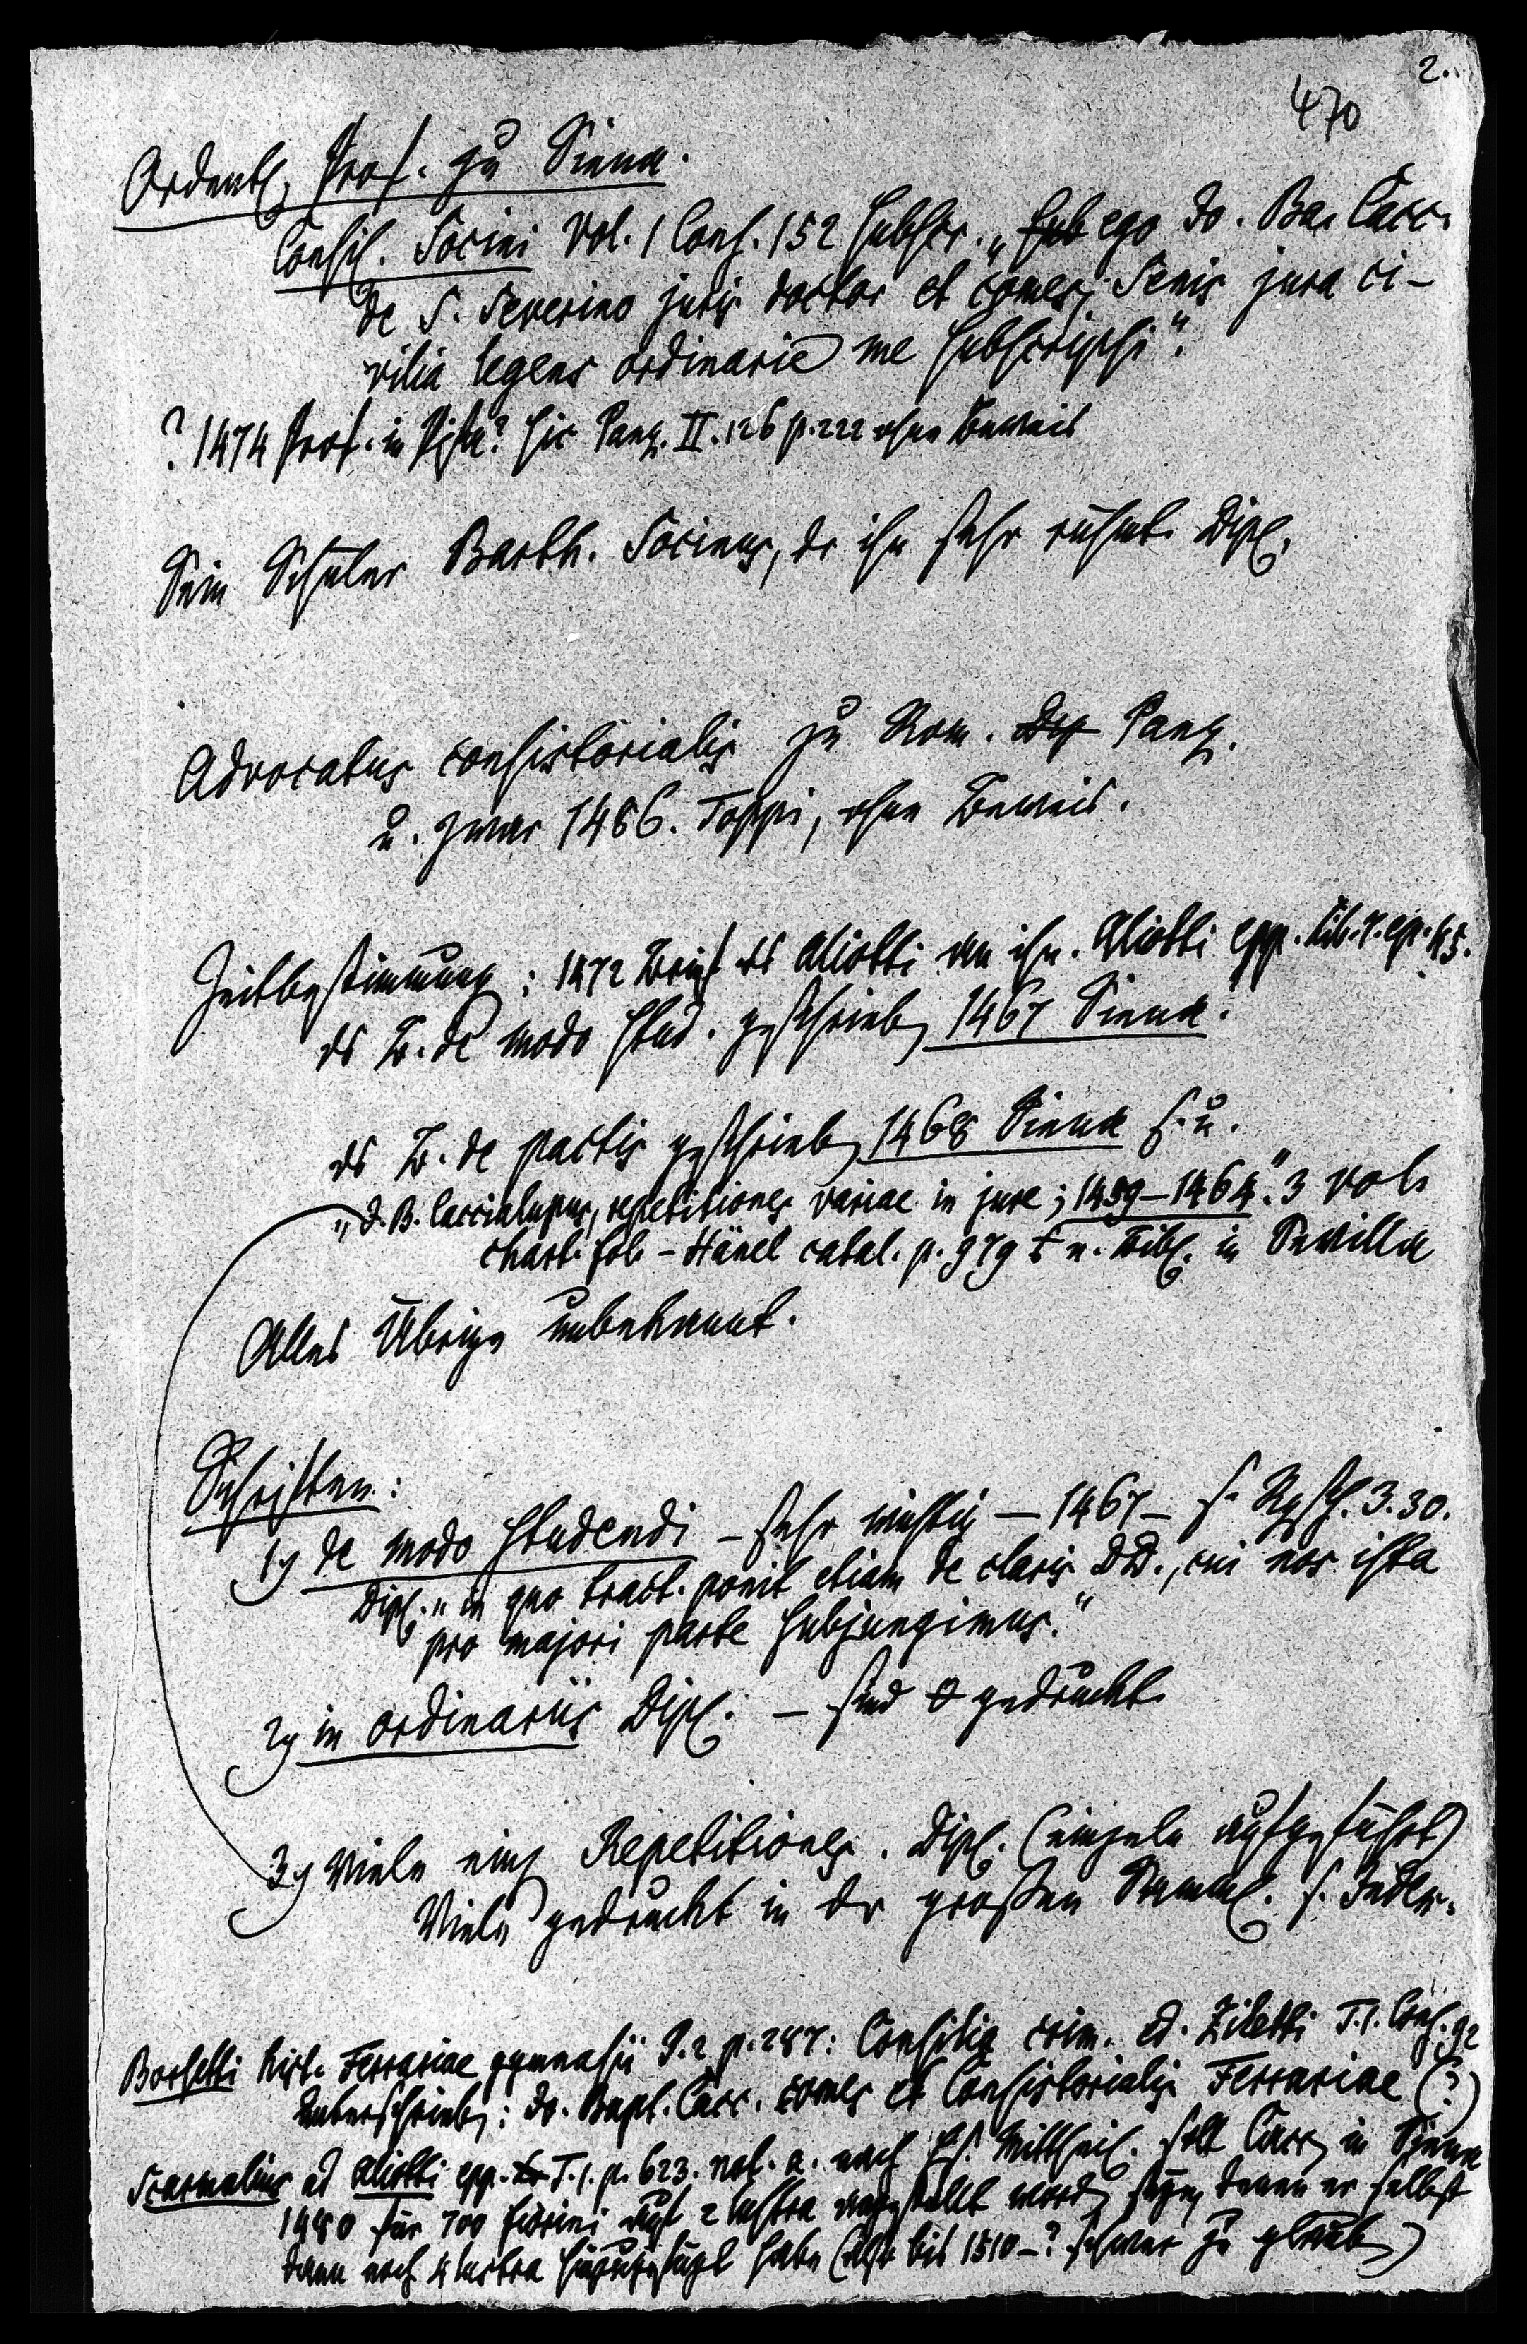 2.
470
Ordentl. Prof. zu Siena.
Consil. Socini Vol. 1 Cons. 152 subscr. „Sub ego Jo. Ba. Cacc.
de S. Severino juris doctor et comes, Senis jura ci-
vilia legens ordinarie me subscripsi“.
? 1474 Prof. in Pisa? sic Panz. II. 126 p. 222 ohne Beweis
Sein Schüler Barth. Socinus, der ihn sehr rühmt. Dipl.
Advocatus consistorialis zu Rom. Panz.
u. zwar 1486. Toppi, ohne Beweis.
Zeitbestimmung: 1472 Brief des Aliotti an ihn. Aliotti epp. Lib. 7. ep. 45.
das B. de modo stud. geschrieben 1467 Siena.
das B. de pactis geschrieben 1468 Siena s. u.
„J. B. Caccialupus, repetitiones variae in jure; 1459–1464.“ 3 vol.
chart. fol. – Hänel catal. p. 979 Bibl. in Sevilla
Alles Übrige unbekannt.
Schriften:
1) de modo studendi – sehr wichtig – 1467 – s. RGesch. 3. 30.
Dipl. „in quo tract. ponit etiam de claris DD., cui nos ista
pro majori parte subjungimus.“
2) in ordinariis Dipl. – sind 0 gedruckt
3) Viele einz. Repetitiones. Dipl. (einzeln aufgeführt)
Viele gedruckt in der großen Samml. s. Index.
Borsetti hist. Ferrariae gymnasii P. 2 p. 287: Consilia crim. ed. Ziletti T. 1. Cons. 92
unterschrieben: Jo. Bapt. Cacc. comes et Consistorialis Ferrariae (?)
Scarmalius ad Aliotti epp. T. 1. p. 623. not. a. nach Hs. Mittheil. soll Cacc. in Siena
1480 für 700 fiorini auf 2 lustra angestellt worden seyn, denen er selbst
dann noch 4 lustra hinzugefügt habe (also bis 1510 – ? schwer zu glauben)